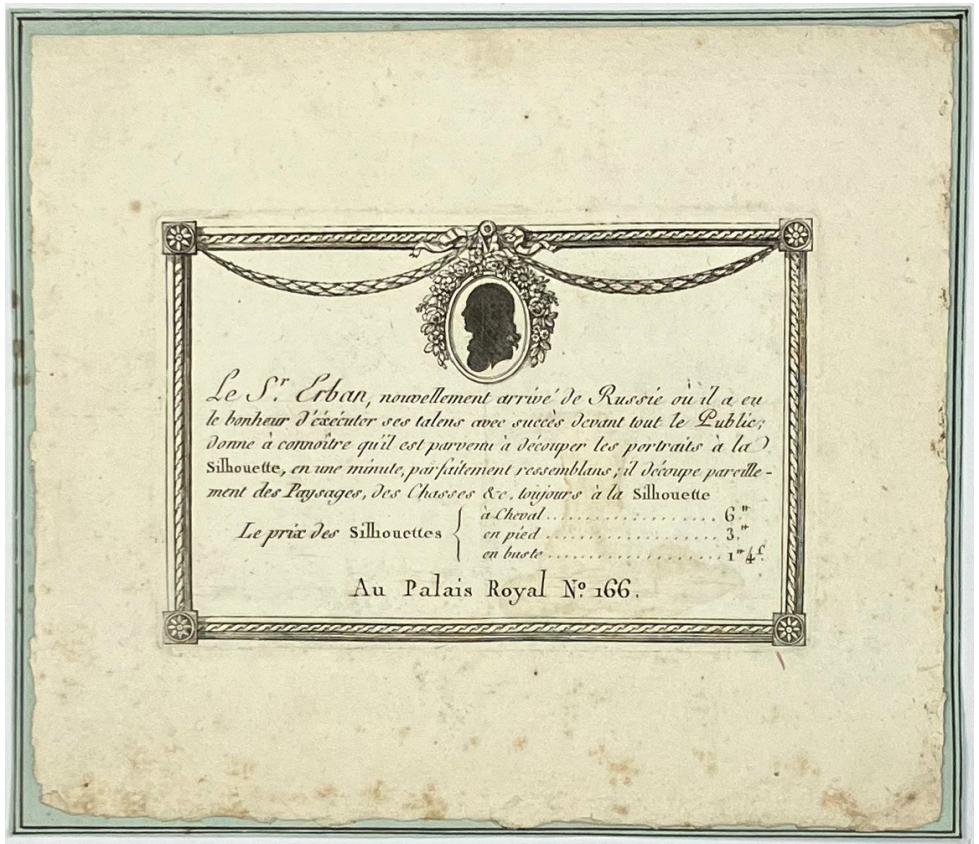 Le S.r Erban, nouvellement arrivé de Russie où il a eu
le bonheur d'éxécuter ses talens avec succès devant tout le Public;
donne à connoître qu'il est parvenu à découper les portraits à la
Silhouette, en une minute, parfaitement ressemblans; il découpe pareille-
ment des Paysages, des Chasses &c. toujours à la Silhouette
Le prix des Silhouettes { à Cheval........................ 6."
en pied........................ 3."
en buste........................ 1" 4.s
Au Palais Royal N.º 166.